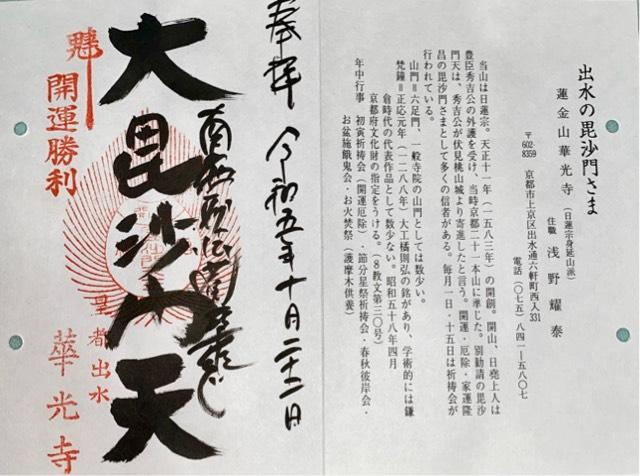 出水の毘沙門さま
蓮金山華光寺(日蓮宗身延山派)
住職 浅野耀泰
〒602-8359 京都市上京区出水通六軒町西入331
電話(〇七五)八四一ー五八〇七
当山は日蓮宗。天正十一年(一五八三年)の開創。開山、日堯上人は
豊臣秀吉公の外護を受け、当時京都二十一本山に準じた。別勧請の毘沙
門天は、秀吉公が伏見桃山城より寄進したと言う。開運・厄除・家運隆
昌の毘沙門さまとして多くの信者がある。毎月一日・十五日は祈祷会が
行われている。
山門=六足門、一般寺院の山門としては数少い。
梵鐘=正応元年(一二八八年)大工橘則弘の銘があり、学術的には鎌
倉時代の代表作品として数少ない。昭和五十八年四月
京都府文化財の指定をうける。(8教文第三〇号)
年中行事 初寅祈祷会(開運厄除)・節分星祭祈祷会・春秋彼岸会・
お盆施餓鬼会・お火焚祭(護摩木供養)
奉拝 令和五年十月二十二日
南無妙法蓮華経
大毘沙門天
皇都出水
華光寺
開運勝利